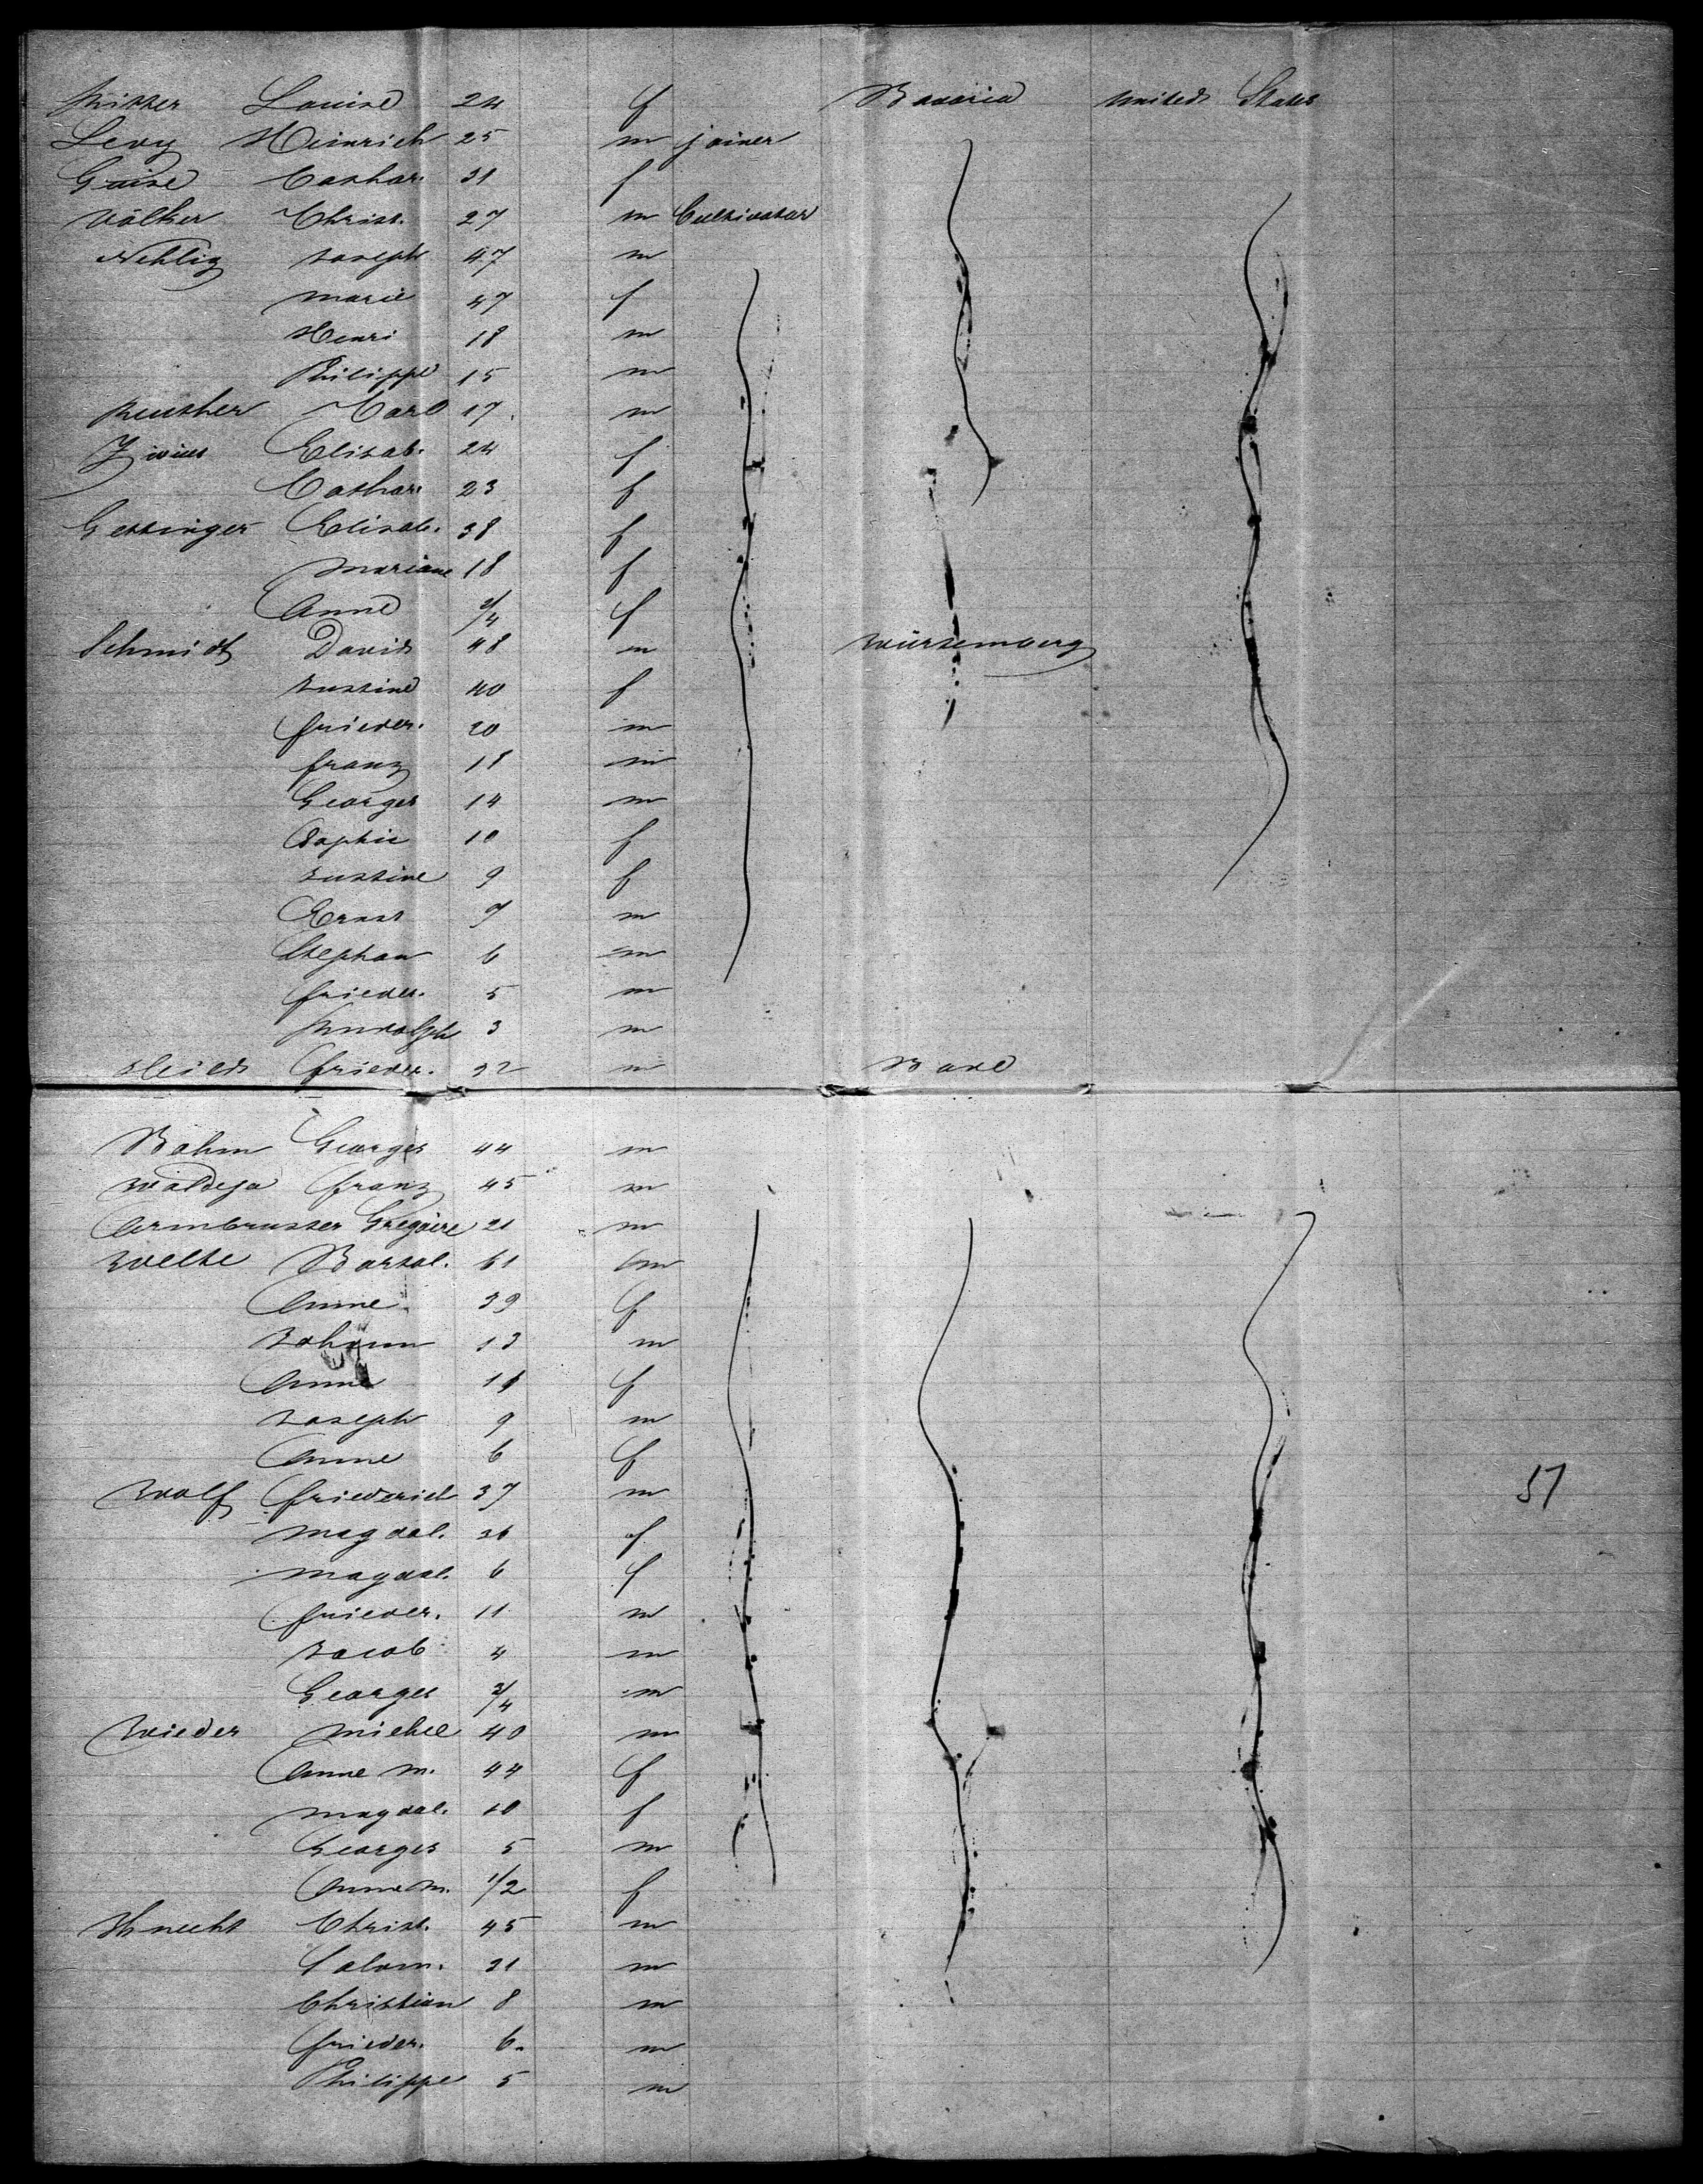 Ritter Louise 24 f Bavaria United States
Levy Heinrich 25 m joiner
Guise Cathar. 31 f
Völker Christ. 27 m Cultivator
Nehlig Joseph 47 m
Marie 47 f
Henri 18 m
Philippe 15 m
Reuther Carl 17 m
Elisab. 24 f
Cathar. 23 f
Gettinger Elisab. 38 f
Mariane 18 f
Anne f
Schmidt David 48 m Würtemberg
Justine 40 f
Frieder. 20 m
Franz 18 m
Georges 14 m
Sophie 10 f
Justine 9 f
Ernst 7 m
Stephan 6 m
Frieder. 5 m
Rudolph 3 m
Heild Frieder. m Bade
Bohm Georges 44 m
Franz 45 m
Armbruster Gregoire 21 m
Welte Bartol. m
Anne 39 f
Johann 13 m
Anne 11 f
Joseph 9 m
Anne 6 f
Wolf Friederich 37 m
Magdal. 36 f
Magdal. 6 f
Frieder. 11 m
Jacob 4 m
Georges 3/4 m
Wieder Michel 40 m
Anne M. 44 f
Magdal. 10 f
Georges 5 m
Anne M. 1/2 f
Knecht Christ. 45 m
Salom. 31 m
Christian 8 m
Frieder. 6 m
Philippe 5 m
51